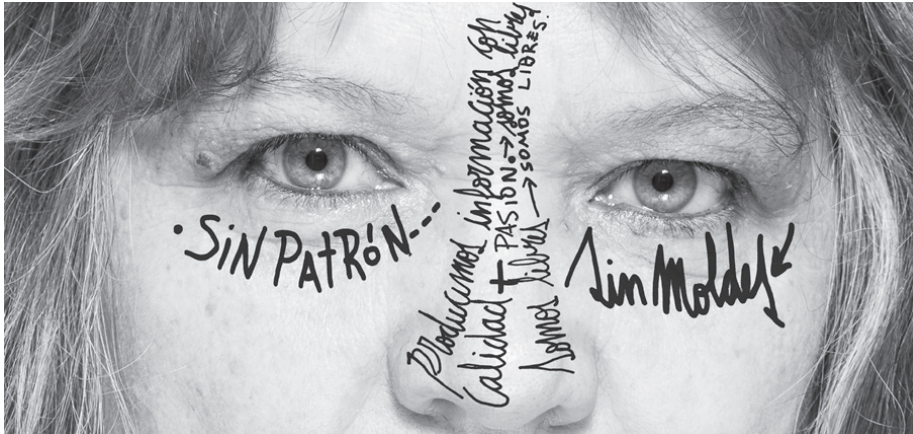 • SiN PAtRóN---
Producimos información con
Calidad + PASIÓN. → somos libres
Somos libres → SOMOS LIBRES.
Sin Moldes